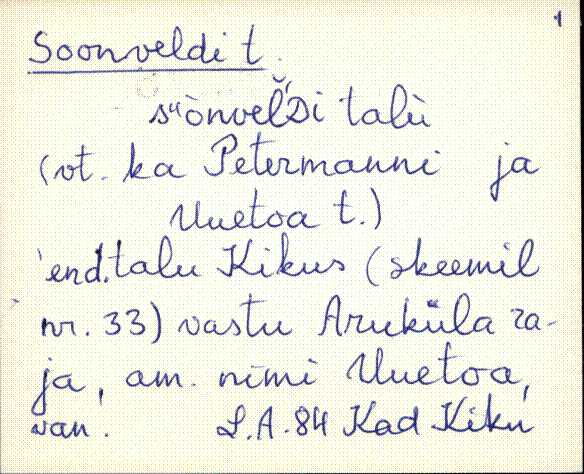 1
Soonveldi t.
suònvelDi talù
(vt. ka Petermanni ja
Uuetoa t.)
end. talu Kikus (skeemil
nr. 33) vastu Aruküla ra-
ja, am. nimi Uuetoa,
van. L.A. 84 Kad Kiku